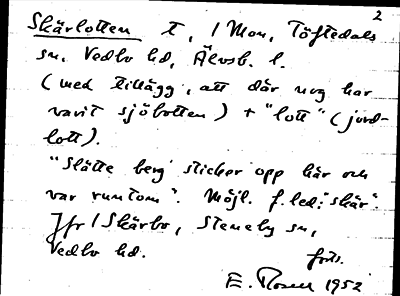 2
Skärlotten t, 1 Mon, Töftedals
sn, Vedbo hd, Älvsb. l.
(med tillägg, att där nog har
varit sjöbotten) + "lott" (jord-
lott).
"Slätte berg sticker opp här och
var runtom". Möjl. f. led: "skär".
Jfr 1 Skärbo, Steneby sn,
Vedbo hd.
forts.
E. Rosell 1952